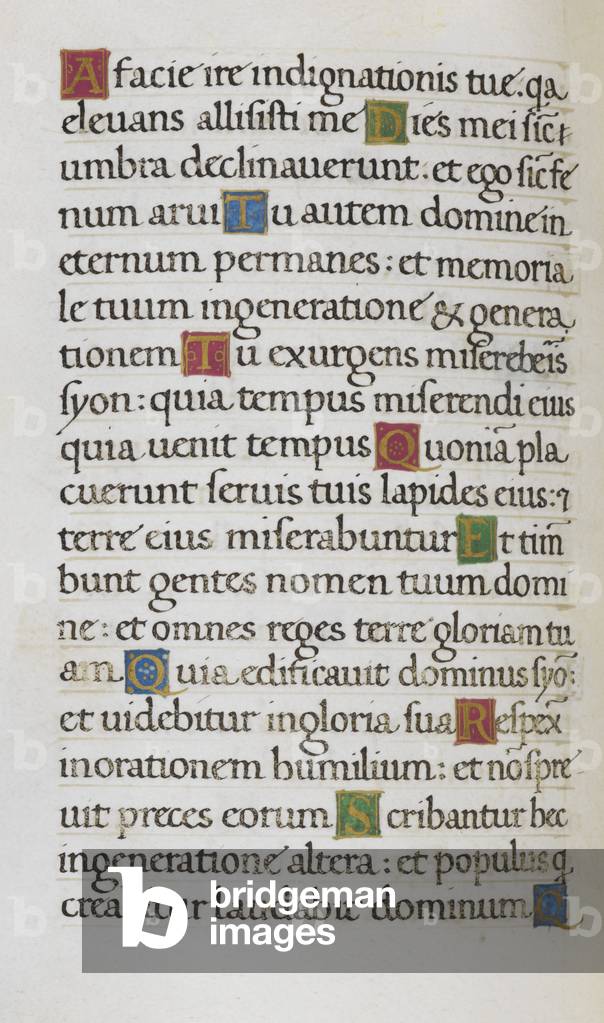 A facie ire indignationis tue: qa
eleuans allisisti me Dies mei sic̄t
umbra declinauerunt: et ego sic̄ fe
num arui Tu autem domine in
eternum permanes: et memoria
le tuum ingeneratione & genera
tionem Tu exurgens misereb̄eis
syon: quia tempus miserendi eius
quia uenit tempus Quoniā pla
cuerunt seruis tuis lapides eius: ⁊
terre eius miserabuntur Et tim̄
bunt gentes nomen tuum domi
ne: et omnes reges terre gloriam tu
am Quia edificauit dominus syō:
et uidebitur ingloria sua Respex̄
inorationem humilium: et nō spre
uit preces eorum Scribantur hec
ingeneratione altera: et populus q̄
crea ur laudabit dominum Q
bridgeman
images